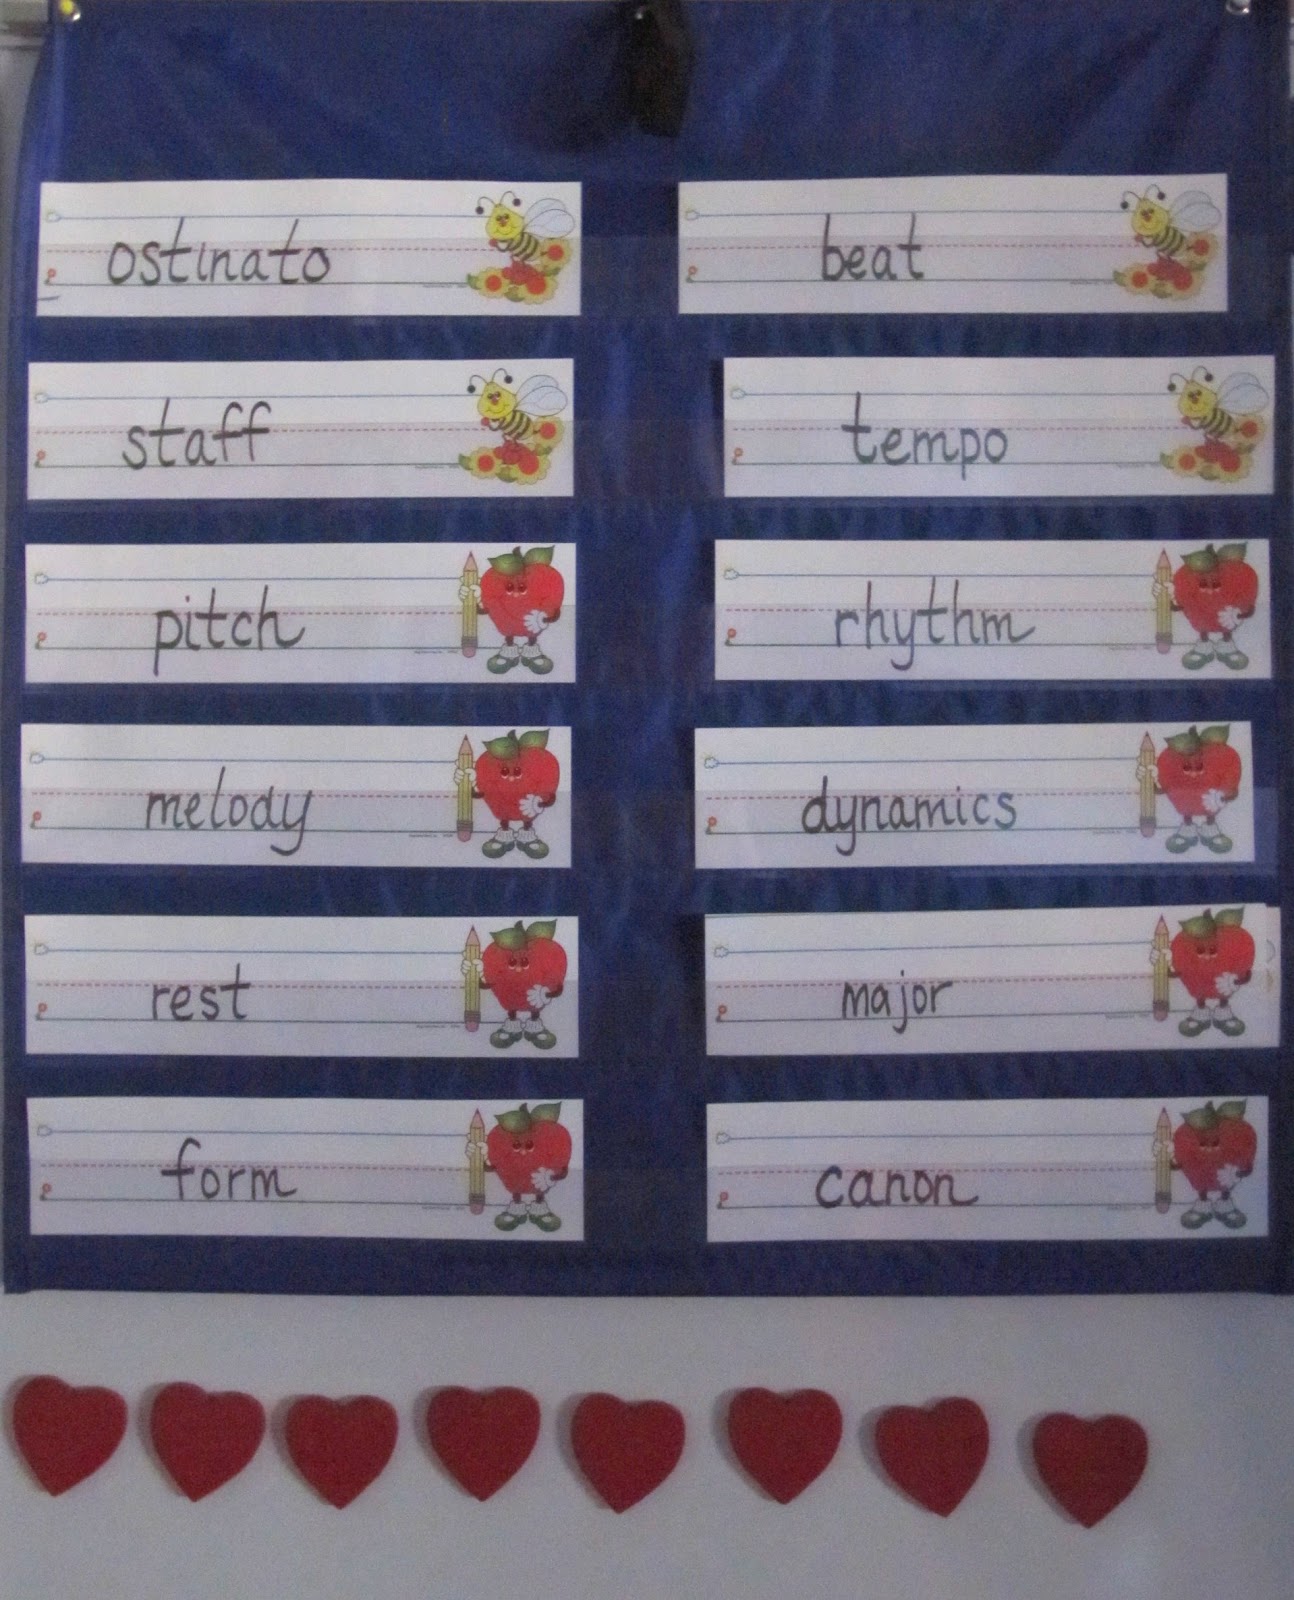 ostinato
beat
staff
tempo
pitch
rhythm
melody
dynamics
rest
major
form
canon